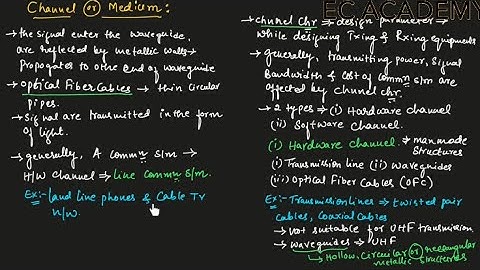 Channel or Medium:
→ the signal enter the waveguide,
are reflected by metallic walls →
Propogates to other end of waveguide
→ Optical Fiber Cables → thin circular
pipes.
→ Signal are transmitted in the form
of light.
→ generally, A commn s/m →
H/w channel ⇒ line commn s/m.
Ex:- land line phones & Cable TV
n/w.
EC ACADEMY
→ channel chr → design parameter →
While designing Txing & Rxing equipments
→ generally, transmitting power, signal
Bandwidth & Cost of commn s/m are
affected by chnnel chr.
→ 2 types ⇒ (i) Hardware channel
(ii) Software channel.
(i) Hardware channel. → manmade
structures
(i) Transmission line (ii) Waveguides
(iii) Optical Fiber Cables (OFC)
Ex:- Transmission lines ⇒ twisted pair
cables, coaxial cables
→ not suitable for UHF transmission
→ waveguides ⇒ UHF
↳ Hollow, circular or rectangular
metallic structures